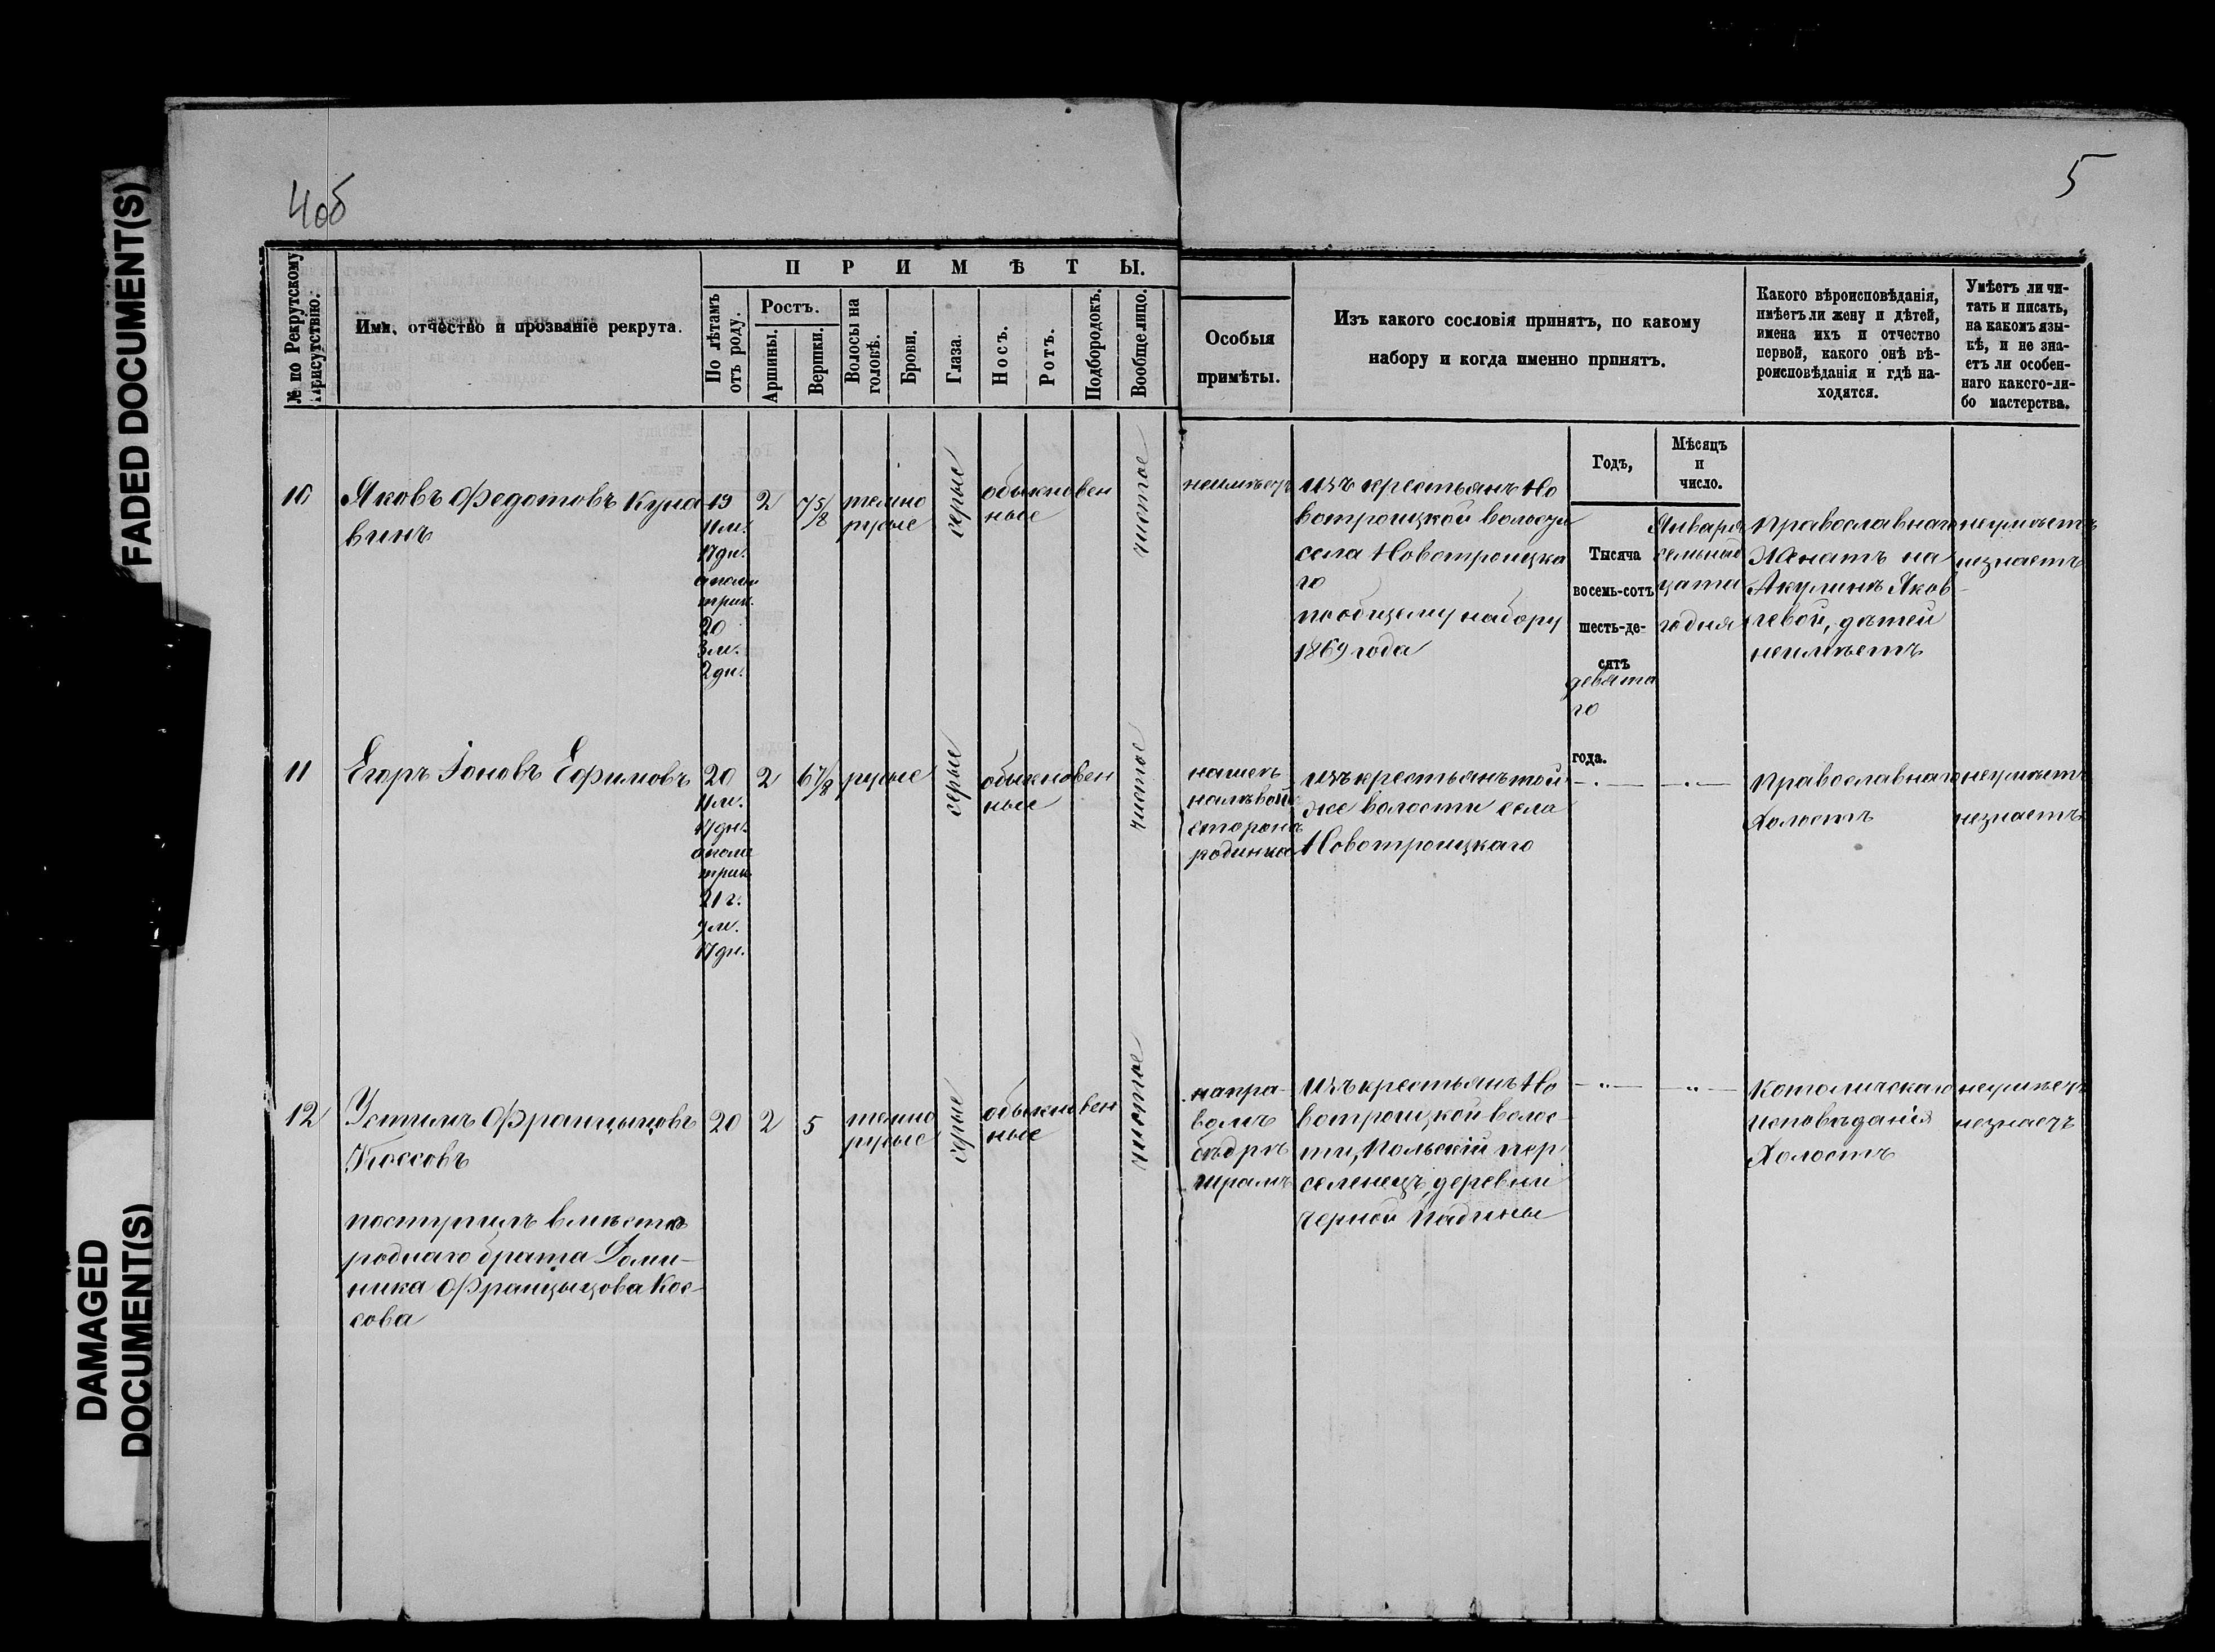 FADED DOCUMENT(S)
DAMAGED
DOCUMENT(S)
4об
5
№ по Рекрутскому
присутствію.
Имя, отчество и прозваніе рекрута.
ПРИМѢТЫ.
По лѣтамъ
отъ роду.
Ростъ.
Аршины.
Вершки.
Волосы на
головѣ.
Брови.
Глаза.
Носъ.
Ротъ.
Подбородокъ.
Вообще лицо.
Особыя
примѣты.
Изъ какого сословія принятъ, по какому
набору и когда именно принятъ.
Какого вѣроисповѣданія,
имѣетъ ли жену и дѣтей,
имена ихъ и отчество
первой, какого онѣ вѣ-
роисповѣданія и гдѣ на-
ходятся.
Умѣетъ ли чи-
тать и писать,
на какомъ язы-
кѣ, и не зна-
етъ ли особен-
наго какого-ли-
бо мастерства.
Годъ,
Мѣсяцъ
и
число.
10
Яковъ Федотовъ Куна
винъ
19
11 м.
17 дн.
а по ме
трик.
20
3 м.
2 дн.
2
7 5/8
темно
русые
серые
обыкновен
ные
чистое
неимѣетъ
изъ крестьянъ Но
вотроицкой волости
села Новотроицка
го
по общему набору
1869 года
Тысяча
восемь-сотъ
шесть-де-
сятъ
девята
го
года.
Января
семьнад
цата
го дня
Православнаго
Женатъ на
Акулинѣ Яков-
левой, дѣтей
неимѣетъ
неумѣетъ
незнаетъ
11
Егоръ Іоновъ Ефимовъ
20
11 м.
17 дн.
а по ме
трик.
21 г.
9 м.
17 дн.
2
6 7/8
русые
серые
обыкновен
ные
чистое
на шеѣ
на лѣвой
сторонѣ
родинка
изъ крестьянъ той
же волости села
Новотроицкаго
—.—
—.—
Православнаго
Холостъ
неумѣетъ
незнаетъ
12
Устимъ Францыцовъ
Коссовъ
поступилъ вмѣсто
роднаго брата Доми-
ника Францыцова Кос-
сова
20
2
5
темно
русые
серые
обыкновен
ные
чистое
на пра-
вомъ
бѣдрѣ
шрамъ
изъ крестьянъ Но
вотроицкой волос-
ти, Польскій пер
селенецъ, деревни
Черной Падины
—"—
—"—
Католическаго
исповѣданія
Холостъ
неумѣетъ
незнаетъ